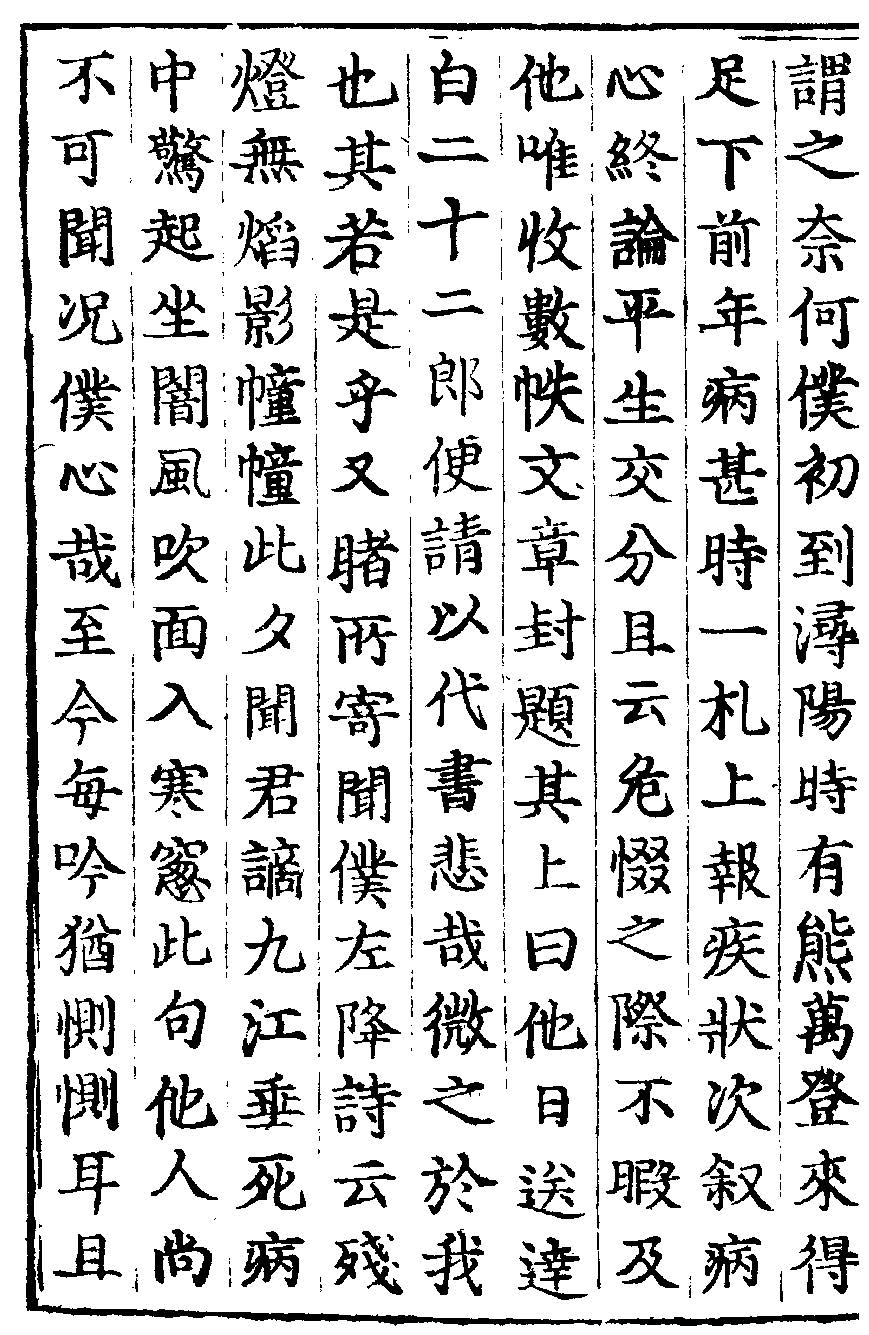 謂之奈何僕初到潯陽時有熊萬登來得
足下前年病甚時一札上報疾狀次叙病
心終論平生交分且云危惙之際不暇及
他唯收數帙文章封題其上曰他日送達
白二十二郎便請以代書悲哉微之於我
也其若是乎又睹所寄聞僕左降詩云殘
燈無焰影幢幢此夕聞君謫九江垂死病
中驚起坐闇風吹面入寒窻此句他人尚
不可聞况僕心哉至今每吟猶惻惻耳且